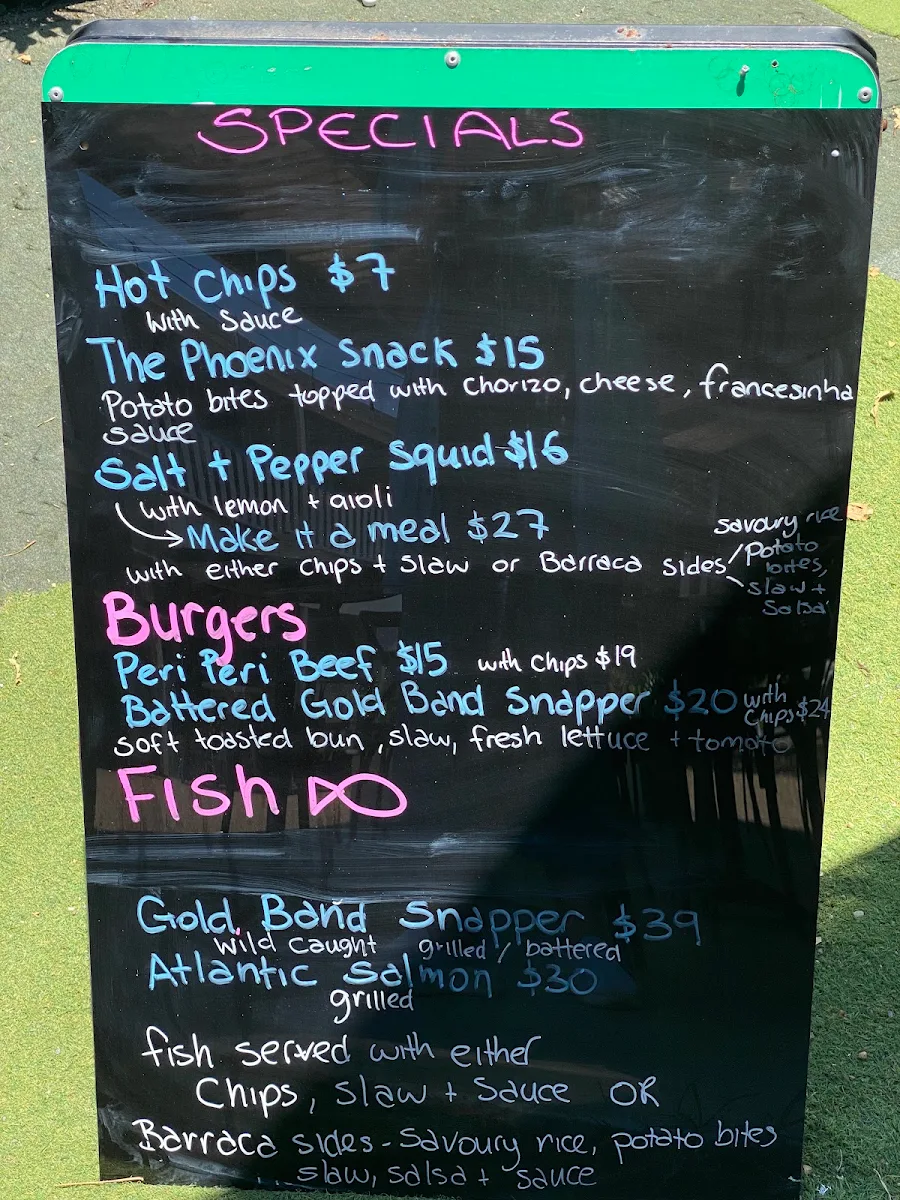 SPECIALS
Hot Chips $7
with sauce
The Phoenix Snack $15
Potato bites topped with chorizo, cheese, francesinha
sauce
Salt + Pepper Squid $16
with lemon + aioli
Make it a meal $27
with either chips + slaw or Barraca sides
savoury rice
Potato
bites,
slaw +
Salsa
Burgers
Peri Peri Beef $15 with chips $19
Battered Gold Band Snapper $20 with
chips $24
soft toasted bun, slaw, fresh lettuce + tomato
Fish
Gold Band Snapper $39
wild caught grilled / battered
Atlantic Salmon $30
grilled
fish served with either
Chips, slaw + sauce OR
Barraca sides - savoury rice, potato bites
slaw, salsa + sauce